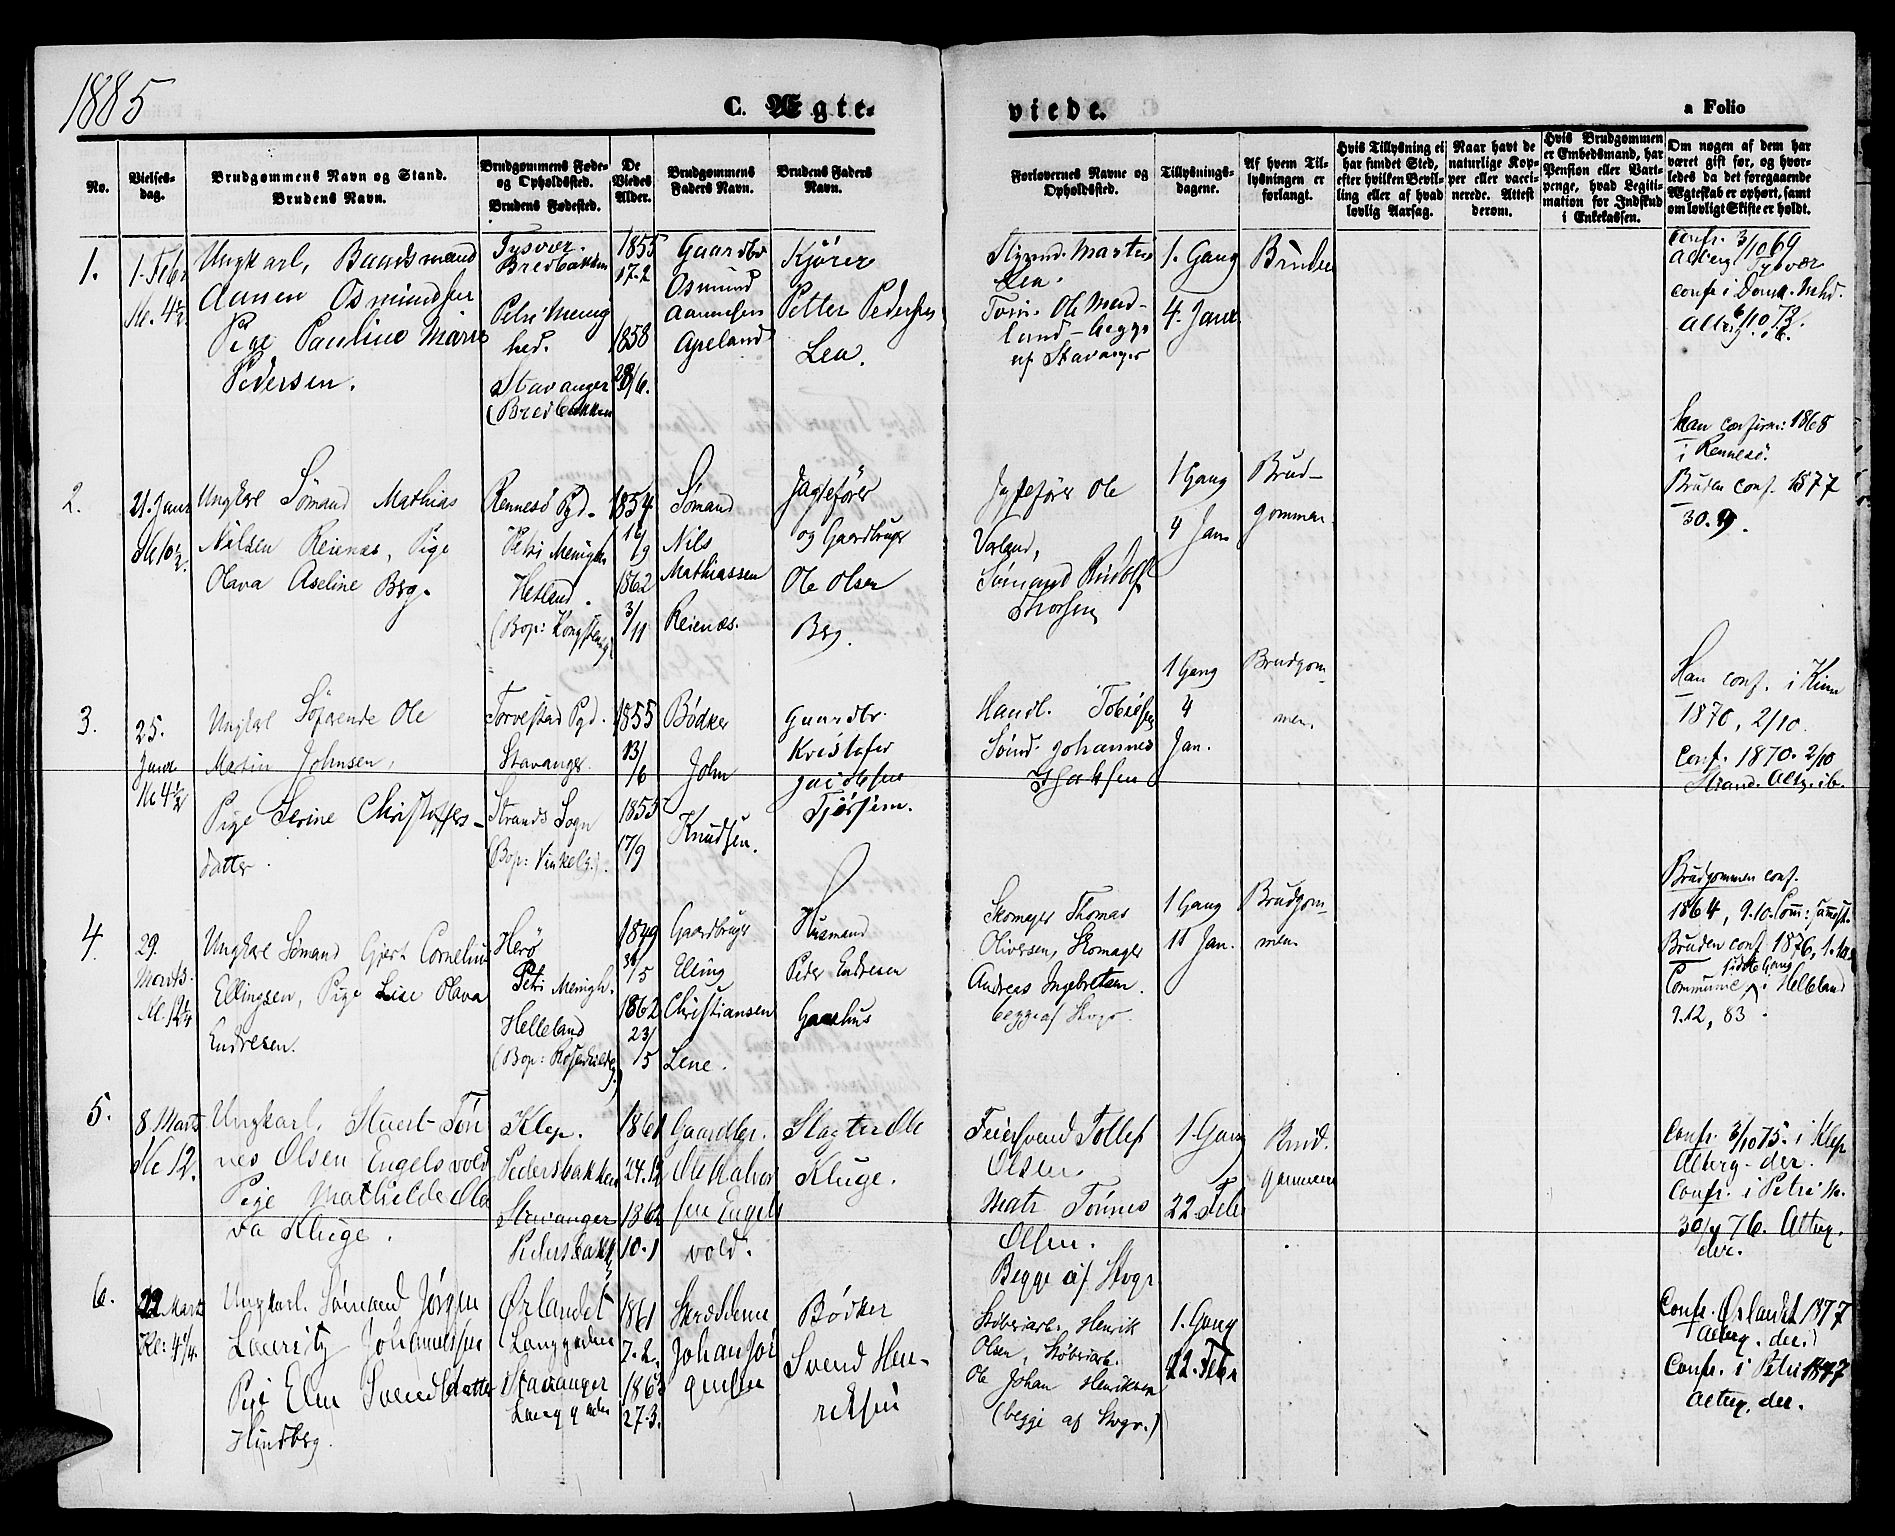 1885
C. Ægte-
viede.
a Folio
No.
Vielses-
dag.
Brudgommens Navn og Stand.
Brudens Navn.
Brudgommens Føde-
og Opholdssted.
Brudens Fødested.
De
Viedes
Alder.
Brudgommens
Faders Navn.
Brudens Faders
Navn.
Forlovernes Navne og
Opholdssted.
Tillysnings-
dagene.
Af hvem Til-
lysningen er
forlangt.
Hvis Tillysning ei
har fundet Sted,
efter hvilken Bevil-
ling eller af hvad
lovlig Aarsag.
Naar havt de
naturlige Kop-
per eller vacci-
nerede. Attest
derom.
Hvis Brudgommen
er Embedsmand, har
Pension eller Vart-
penge, hvad Legiti-
mation for Indskud
i Enkekassen.
Om nogen af dem har
været gift før, og hvor-
ledes da det foregaaende
Ægteskab er ophørt, samt
om lovligt Skifte er holdt.
1.
1. Febr
Kl. 4½.
Ungkarl, Baadsmand
Aanen Osmundsen
Pige Pauline Marie
Pedersen.
Tysvær.
Bredbakken
Petri Menig
hed.
Stavanger
(Bredbakken
1855
17-2
1858
28/6.
Gaardbr
Osmund
Aanensen
Apeland
Kjører
Petter Pedersen
Lea.
Styrmd. Martin
Lea.
Tøm. Ole Mad-
land - begge
af Stavanger
1. Gang
4. Janr
Bruden
Confr. 3/10 69
Attberg Tysvær
Conf i Domk. Mhd.
6/10 73.
2.
21. Janr
Kl 10½.
Ungkarl Sømand Mathias
Nilsen Reienæs, Pige
Olava Aseline Berg.
Rennesø Pgd.
Petri Menighed
Hetland.
(Bop: Kongsteng
1854
16/9
1862
3/11
Sømand
Nils
Mathiassen
Reienæs.
Jagtefører
og Gaardbruger
Ole Olsen
Berg.
Jagtefører Ole
Varland,
Sømand Rudolf
Thorsen
1 Gang
4 Jan
Brud-
gommen.
Han confirm: 1868
i Rennesø.
Bruden conf. 1877
30.9.
3.
25.
Janr
Kl 4½
Ungkal Søfarende Ole
Martin Johnsen,
Pige Serine Christoffers-
datter.
Torvestad Pgd.
Stavanger.
Strands Sogn
(Bop: Vinkelg.).
1855
13/6
1855
17/9
Bødker
John
Knudsen.
Gaardbr.
Kristofer
Jacobsen
Tjøssem.
Handl. Tobiesen
Sømd. Johannes
Isaksen
1 Gang
4
Jan.
Brudgom-
men.
Han conf. i Kinn
1870, 2/10.
Conf. 1870. 2/10
Strand. Attg. ib.
4.
29.
Marts.
Kl. 12¼
Ungkarl Sømand Gjert Cornelius
Ellingsen, Pige Lise Olava
Endresen.
Herø
Petri Menigh.
Helleland
(Bop: Rosenkildeg.)
1849
31/5
1862
23/5
Gaardbruger
Elling
Christiansen
Lene.
Husmand
Peder Endresen
Gaashus
Skomager Thomas
Oliversen, Skomager
Andreas Ingebretsen.
begge af Stvgr.
1 Gang
11 Jan.
Brudgom-
men
Brudgommen conf.
1864, 9.10.
Bruden conf 1876, 1.10.
sidste Gang
Communic. i Helleland
9.12, 83.
5.
8 Marts
Kl 12.
Ungkarl, Stuert-Tøn
nes Olsen Engelsvold
Pige Mathilde Ola
va Kluge.
Klep.
Pedersbakken
Stavanger
Pedersbakk
1861
24.12
1862
10.1
Gaardbr.
Ole Halvor
sen Engels
vold.
Slagter Ole
Kluge.
Feiersvend Tollef
Olsen
Matr Tønnes
Olsen.
Begge af Stvgr
1. Gang
22. Feb
Brud.
gommen
Confr. 3/10 75. i Klep
Attberg. der.
Confr. i Petri M.
30/4 76. Attberg.
der.
6.
22 Marts
Kl: 4¼.
Ungkarl. Sømand Jørgen
Lauritz Johannesen
Pige Elen Svendsdatter
Hindberg.
Ørlandet
Langgaden
Stavanger
Langgaden
1861
7.2.
1863
27.3.
Skræddene
Johan Jør
gensen
Bødker
Svend Hen-
riksen
Støberiarb. Henrik
Olsen, Støberiarb.
Ole Johan Henriksen
(begge af Stvgr.)
1. Gang
22. Febr
Confr. Ørlandet 1877
Attberg. der.
Confr. i Petri 1877
Attberg. der.